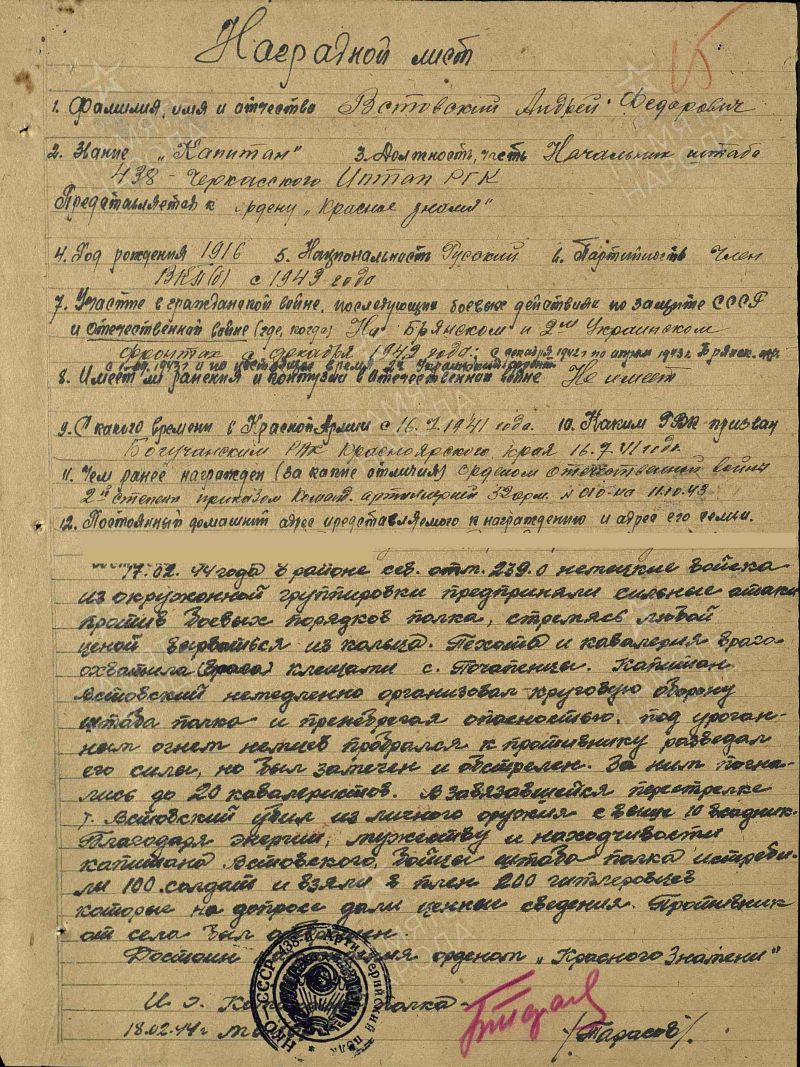 Наградной лист
1. Фамилия, имя и отчество Встовский Андрей Федорович
2. Звание "Капитан" 3. Должность, часть Начальник штаба
438 - Черкасского Иптап РГК
Представляется к ордену "Красное знамя"
4. Год рождения 1916 5. Национальность Русский 6. Партийность член
ВКП(б) с 1943 года
7. Участие в гражданской войне, последующих боевых действиях по защите СССР
и отечественной войне (где, когда) На Брянском и 2м Украинском
фронтах с декабря 1942 года: с декабря 1942 г по апрель 1943 г. Брянск.
1943 г и по настоящее время 2й Украинский фронт
8. Имеет ли ранения и контузии в отечественной войне Не имеет
9. С какого времени в Красной Армии с 16.7.1941 года. 10. Каким РВК призван
Богучанским РВК Красноярского края 16.7.41 года.
11. Чем ранее награжден (за какие отличия) Орденом отечественной войны
2й степени приказом Команд. артиллерией 53 арм. N 010-на 11.10.43
12. Постоянный домашний адрес представляемого к награждению и адрес его семьи.
17.02.44 года в районе сев. отм. 239.0 немецкие войска
из окруженной группировки предприняли сильные атаки
против боевых порядков полка, стремясь любой
ценой вырваться из кольца. Пехота и кавалерия врага
охватила (врага) клещами с. Почапенцы. Капитан
Встовский немедленно организовал круговую оборону
штаба полка и пренебрегая опасностью, под ураган-
ным огнем немцев пробрался к противнику разведал
его силы, но был замечен и обстрелен. За ним погна-
лись до 20 кавалеристов. В завязавшейся перестрелке
т. Встовский убил из личного оружия свыше 10 всадник.
Благодаря энергии, мужеству и находчивости
капитана Встовского, бойцы штаба полка истреби-
ли 100 солдат и взяли в плен 200 гитлеровцев
которые на допросе дали ценные сведения. Противник
от села был отброшен.
Достоин награждения орденом "Красного Знамени"
И. о. Командира полка
18.02.44 г. /Тарасов/.
НКО СССР 438-й Артиллерийский полк
ПАМЯТЬ НАРОДА